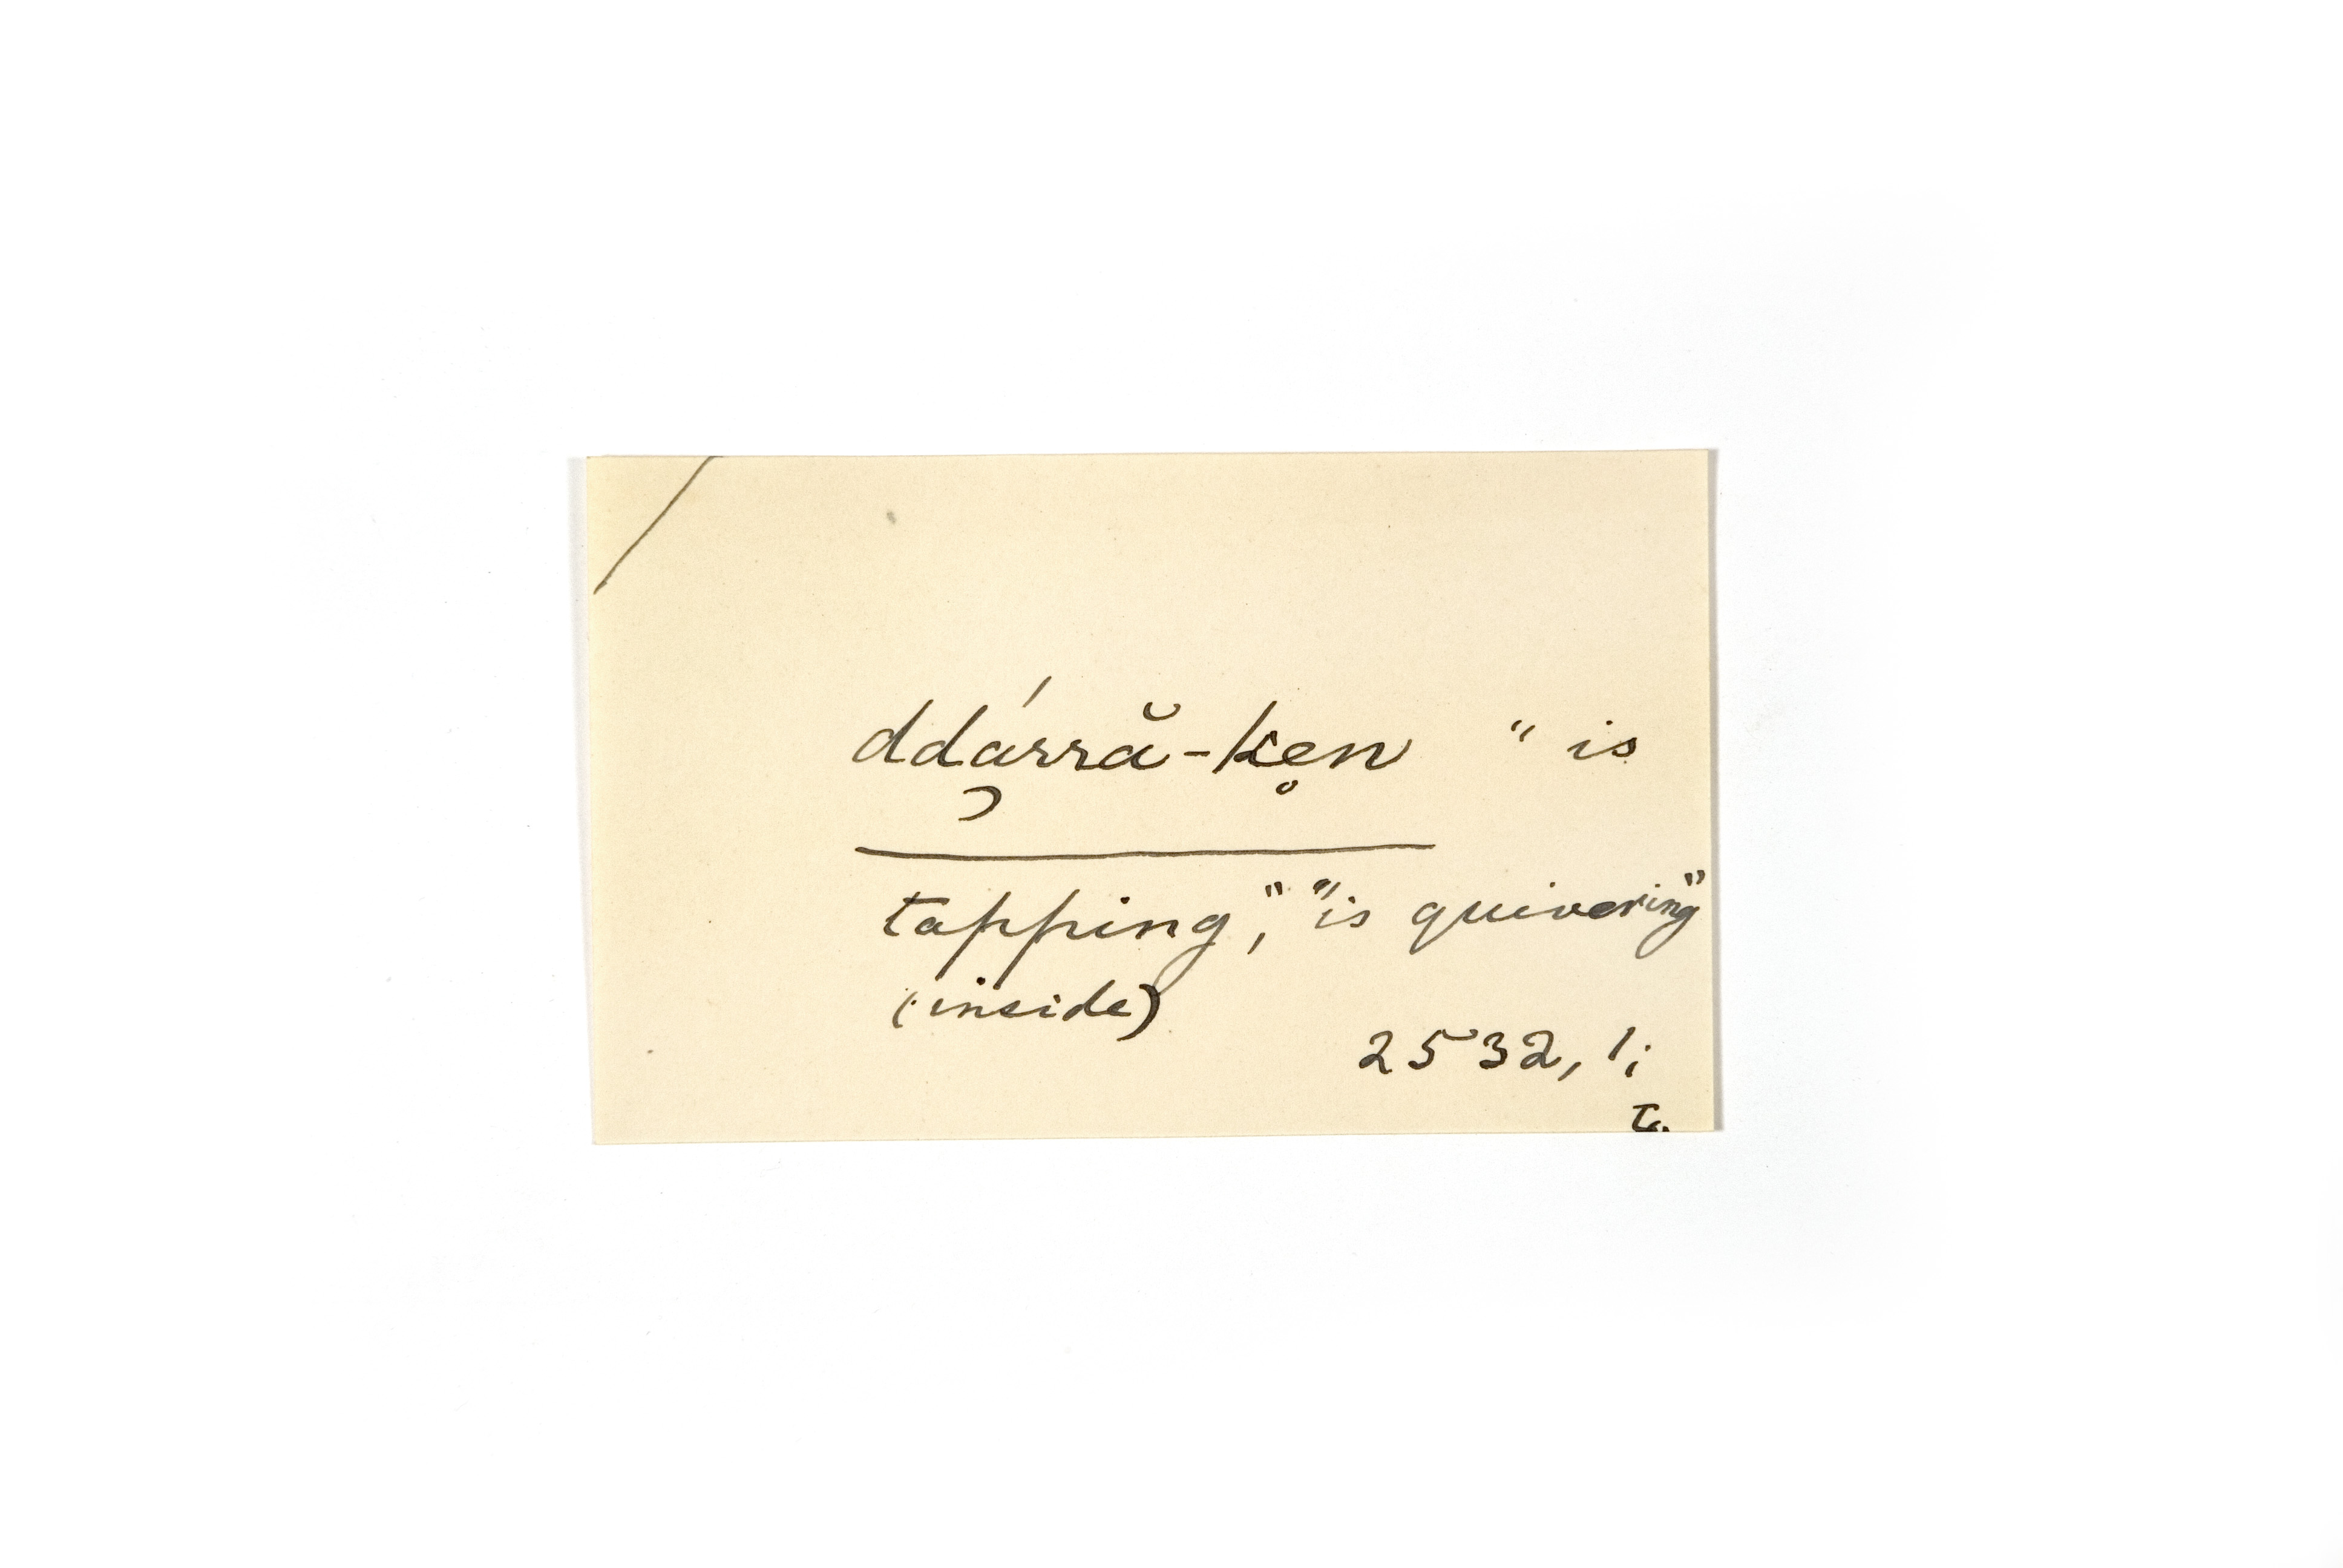 ddá̦rră-ke̥n " is
tapping," "is quivering"
(inside)
2532, 1;